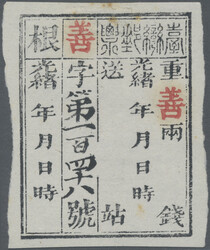 臺灣郵票
重善兩錢
光緒年月日時
送站
善字第一百四十八號
根
光緒年月日時